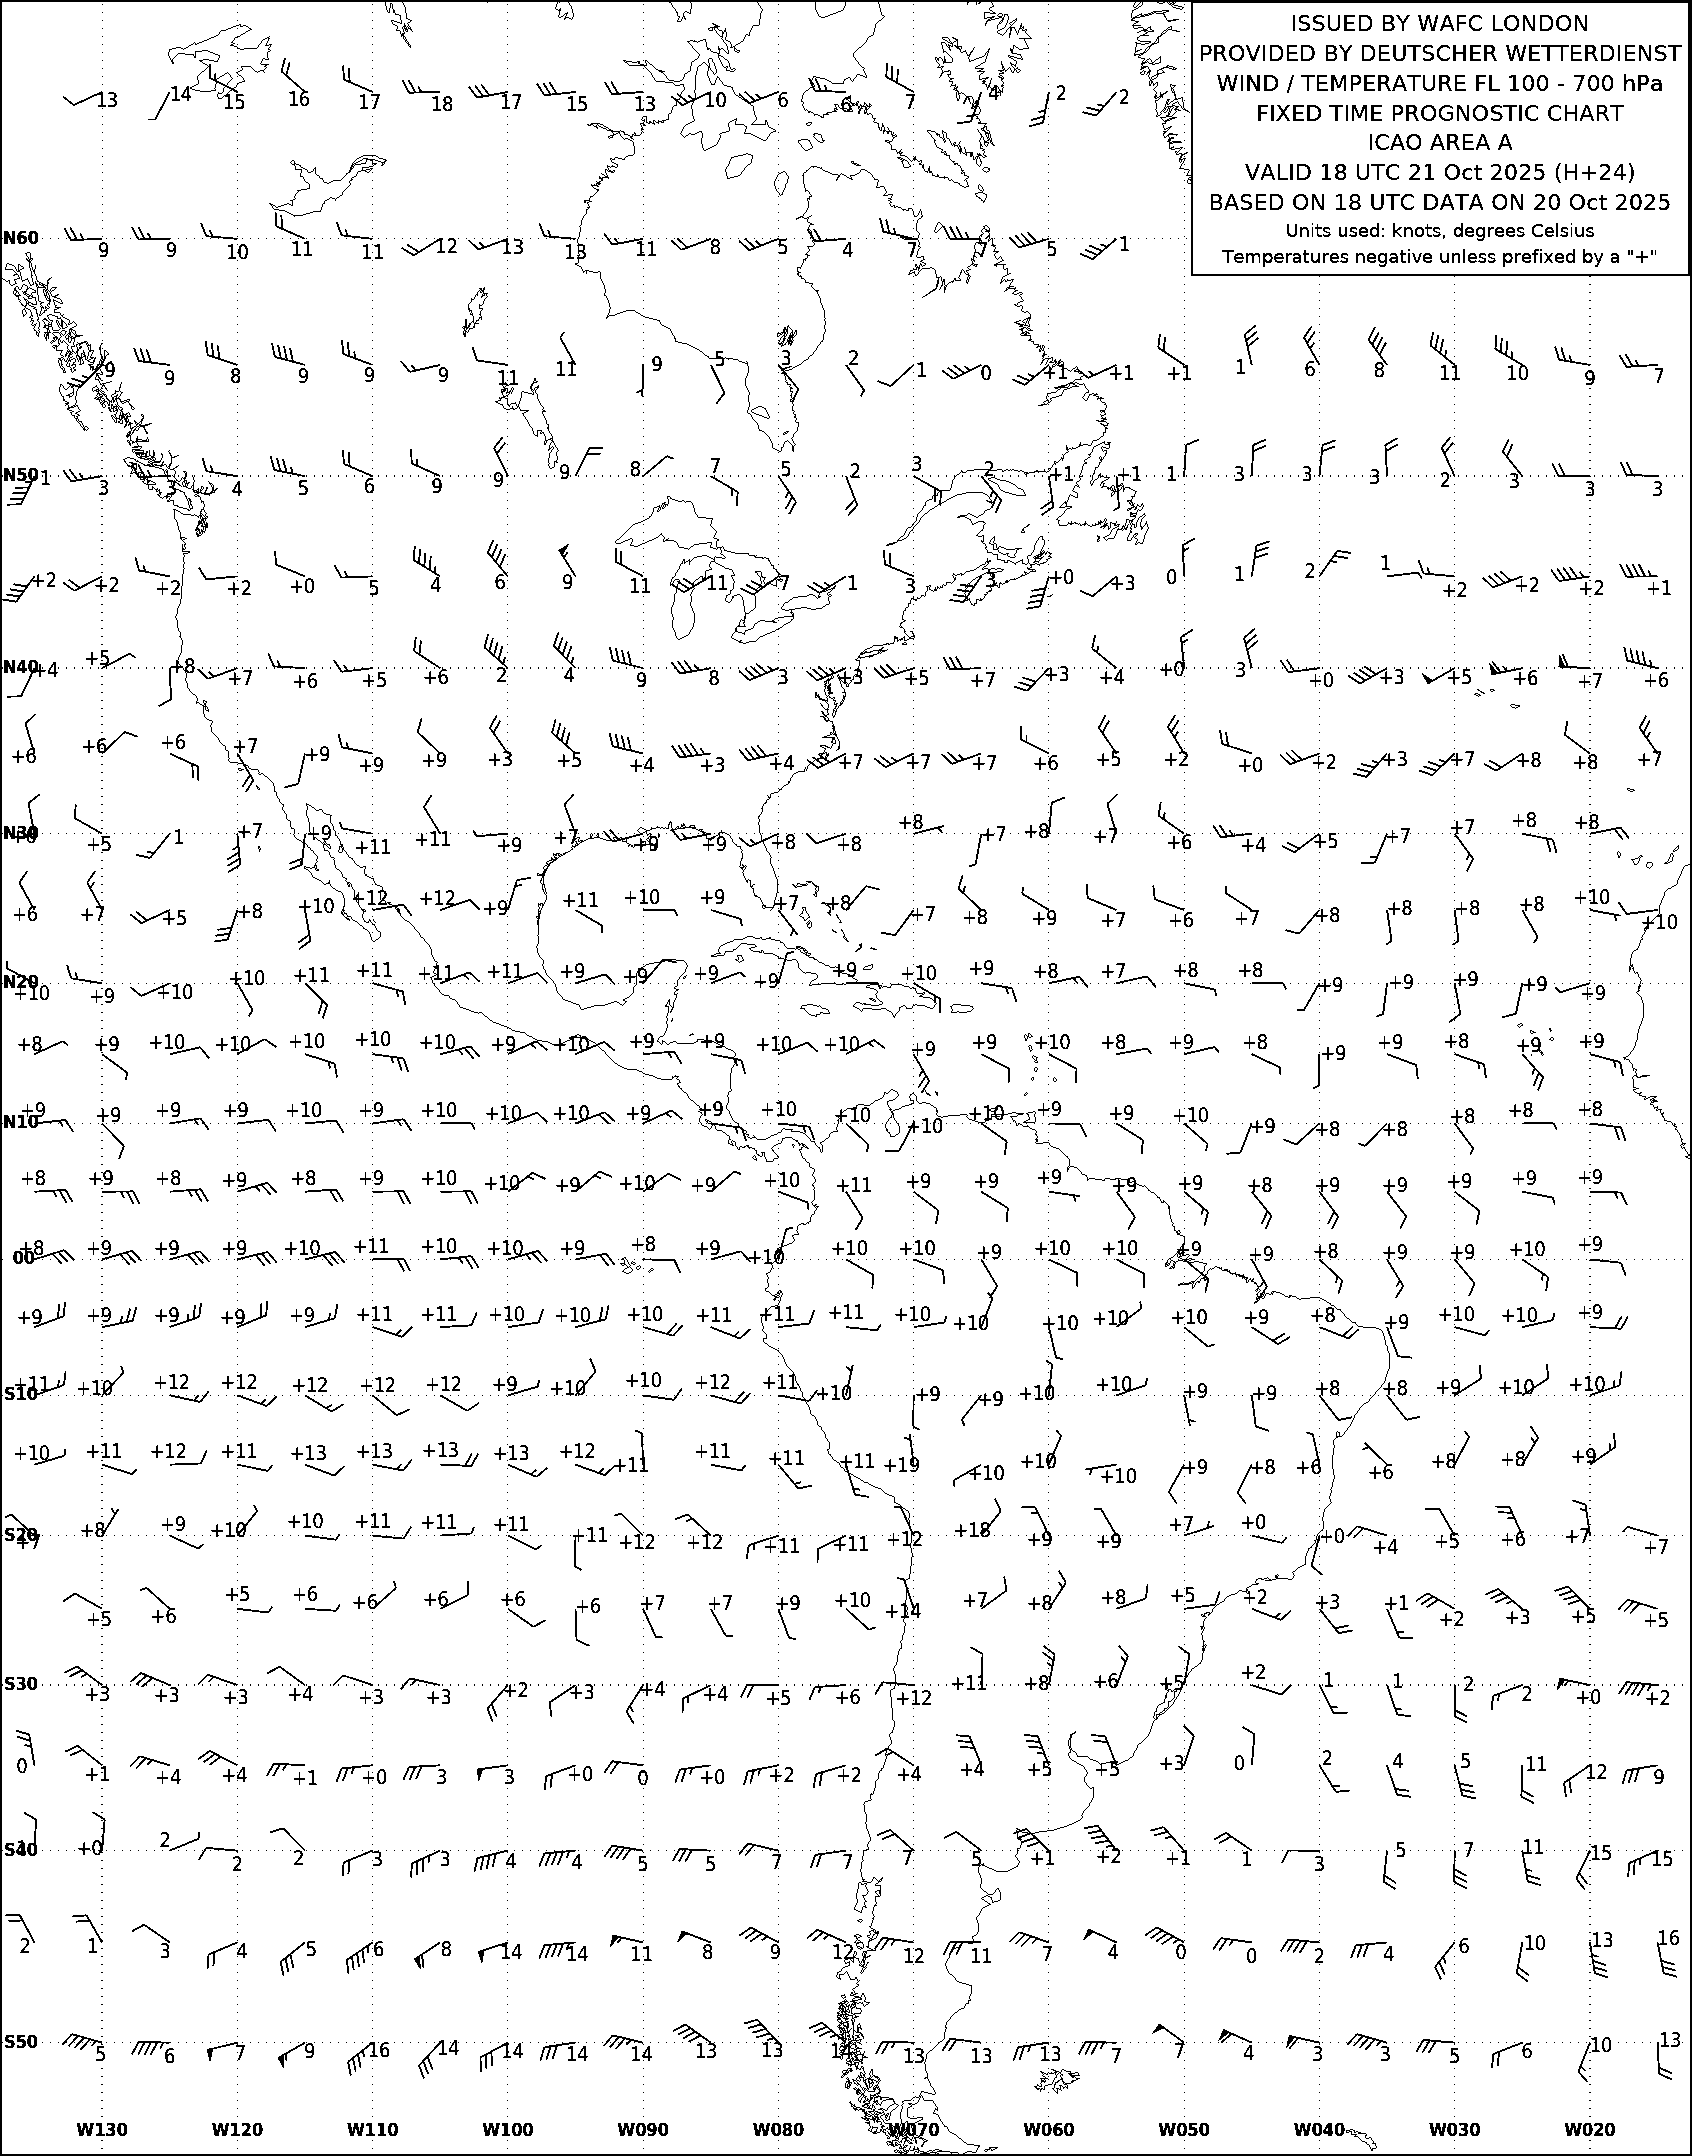 ISSUED BY WAFC LONDON
PROVIDED BY DEUTSCHER WETTERDIENST
WIND / TEMPERATURE FL 100 - 700 hPa
FIXED TIME PROGNOSTIC CHART
ICAO AREA A
VALID 18 UTC 21 Oct 2025 (H+24)
BASED ON 18 UTC DATA ON 20 Oct 2025
Units used: knots, degrees Celsius
Temperatures negative unless prefixed by a "+"
13 14 15 16 17 18 17 15 13 10 6 6 7 4 2 2
N60 9 9 10 11 11 12 13 13 11 8 5 4 7 7 5 1
9 9 8 9 9 9 11 11 9 5 3 2 1 0 +1 +1 +1 1 6 8 11 10 9 7
N50 1 3 3 4 5 6 9 9 9 8 7 5 2 3 2 +1 +1 1 3 3 3 2 3 3 3
+2 +2 +2 +2 +0 5 4 6 9 11 11 7 1 3 3 +0 +3 0 1 2 1 +2 +2 +2 +1
N40 +4 +5 +8 +7 +6 +5 +6 2 4 9 8 3 +3 +5 +7 +3 +4 +0 3 +0 +3 +5 +6 +7 +6
+6 +6 +6 +7 +9 +9 +9 +3 +5 +4 +3 +4 +7 +7 +7 +6 +5 +2 +0 +2 +3 +7 +8 +8 +7
N30 +5 1 +7 +9 +11 +11 +9 +7 +9 +9 +8 +8 +8 +7 +8 +7 +6 +4 +5 +7 +7 +8 +8
+6 +7 +5 +8 +10 +12 +12 +9 +11 +10 +9 +7 +8 +7 +8 +9 +7 +6 +7 +8 +8 +8 +8 +10 +10
N20 +10 +9 +10 +10 +11 +11 +11 +11 +9 +9 +9 +9 +9 +10 +9 +8 +7 +8 +8 +9 +9 +9 +9 +9
+8 +9 +10 +10 +10 +10 +10 +9 +10 +9 +9 +10 +10 +9 +9 +10 +8 +9 +8 +9 +9 +8 +9 +9
N10 +9 +9 +9 +9 +10 +9 +10 +10 +10 +9 +9 +10 +10 +10 +10 +9 +9 +10 +9 +8 +8 +8 +8 +8
+8 +9 +8 +9 +8 +9 +10 +10 +9 +10 +9 +10 +11 +9 +9 +9 +9 +9 +8 +9 +9 +9 +9 +9
00 +8 +9 +9 +9 +10 +11 +10 +10 +9 +8 +9 +10 +10 +10 +9 +10 +10 +9 +9 +8 +9 +9 +10 +9
+9 +9 +9 +9 +9 +11 +11 +10 +10 +10 +11 +11 +11 +10 +10 +10 +10 +10 +9 +8 +9 +10 +10 +9
S10 +11 +10 +12 +12 +12 +12 +12 +9 +10 +10 +12 +11 +10 +9 +9 +10 +10 +9 +9 +8 +8 +9 +10 +10
+10 +11 +12 +11 +13 +13 +13 +13 +12 +11 +11 +11 +11 +19 +10 +10 +10 +9 +8 +6 +6 +8 +8 +9
S20 +8 +9 +10 +10 +11 +11 +11 +11 +12 +12 +11 +11 +12 +18 +9 +9 +7 +0 +0 +4 +5 +6 +7 +7
+5 +6 +5 +6 +6 +6 +6 +6 +7 +7 +9 +10 +14 +7 +8 +8 +5 +2 +3 +1 +2 +3 +5 +5
S30 +3 +3 +3 +4 +3 +3 +2 +3 +4 +4 +5 +6 +12 +11 +8 +6 +5 +2 1 1 2 2 +0 +2
0 +1 +4 +4 +1 +0 3 3 +0 0 +0 +2 +2 +4 +4 +5 +5 +3 0 2 4 5 11 12 9
S40 +0 2 2 2 3 3 4 4 5 5 7 7 7 5 +1 +2 +1 1 3 5 7 11 15 15
2 1 3 4 5 6 8 14 14 11 8 9 12 12 11 7 4 0 0 2 4 6 10 13 16
S50 5 6 7 9 16 14 14 14 14 13 13 13 13 13 7 7 4 3 3 5 6 10 13
W130 W120 W110 W100 W090 W080 W070 W060 W050 W040 W030 W020